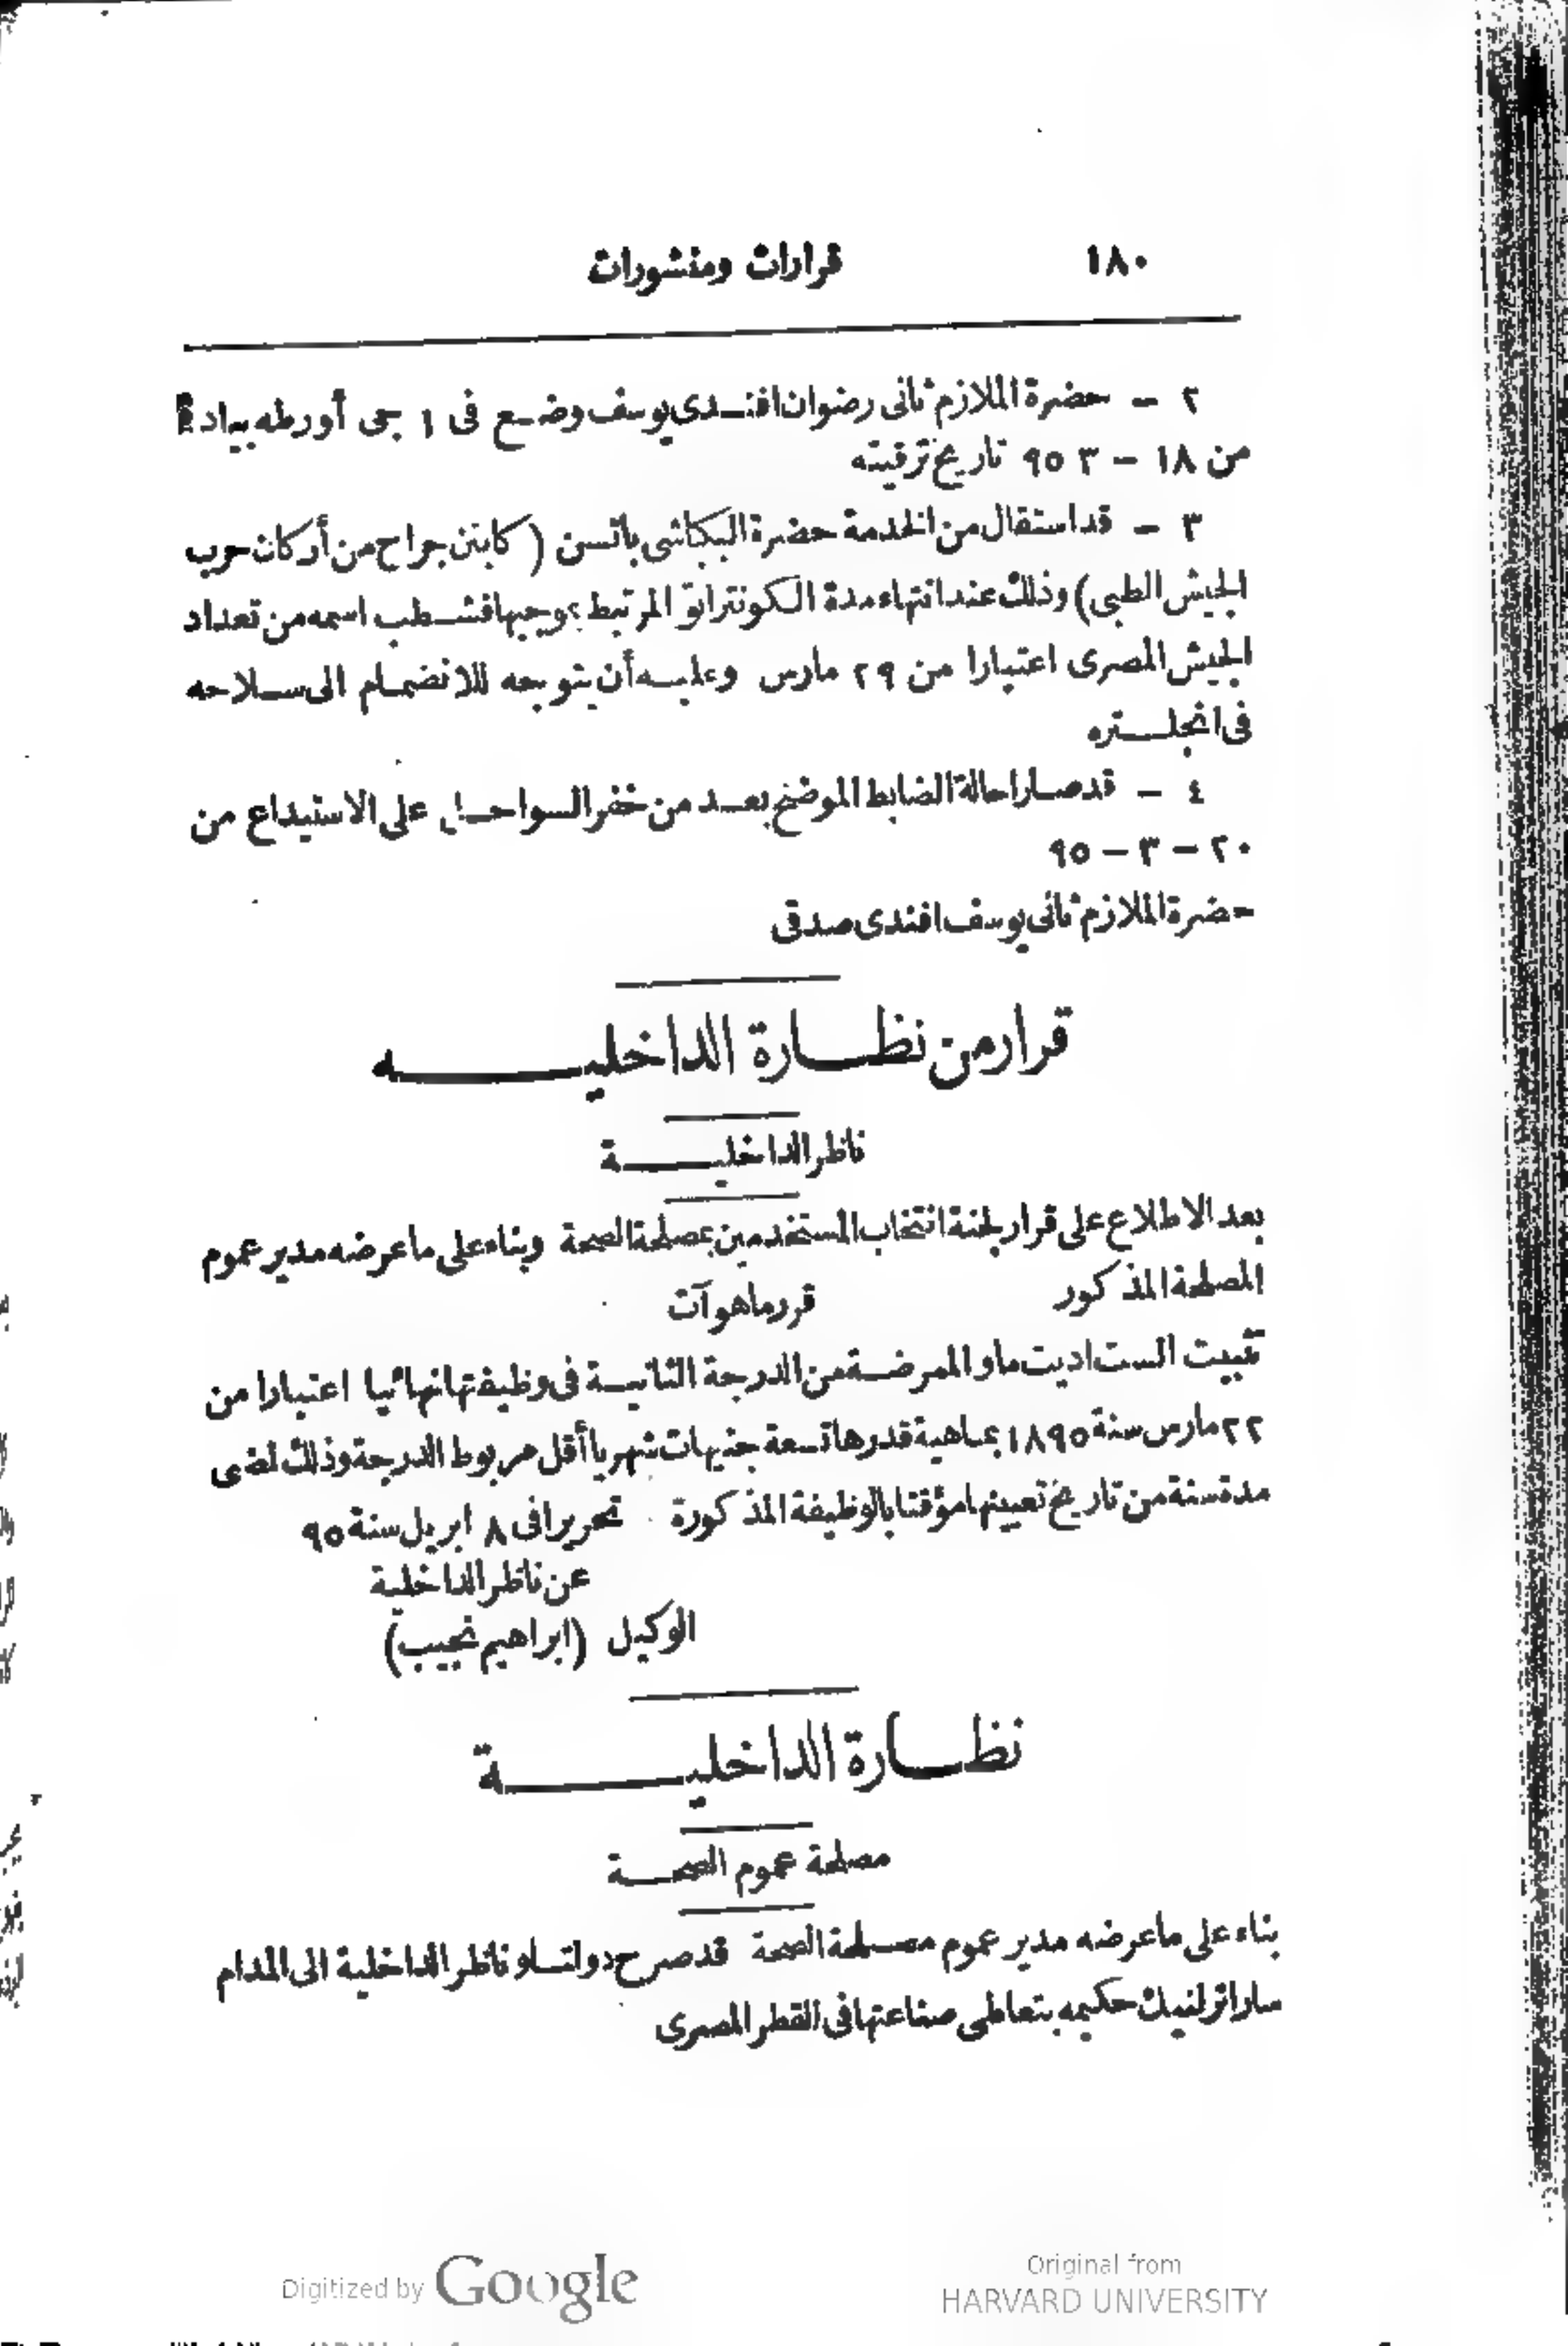 ١٨٠ قرارات ومنشورات
٢ – حضرة الملازم ثانى رضوان افندى يوسف وضع فى ١ جى أورطه بياده
من ١٨ – ٣ ٩٥ تاريخ ترقيته
٣ – قد استقال من الخدمة حضرة البكباشى باتسن (كابتن جراح من أركان حرب
الجيش الطبى) وذلك عند انتهاء مدة الكونتراتو المرتبط بموجبها فشطب اسمه من تعداد
الجيش المصرى اعتبارا من ٢٩ مارس وعليه أن يتوجه للانضمام الى سلاحه
فى انجلتره
٤ – قد صار احالة الضابط الموضح بعد من خفر السواحل على الاستيداع من
٢٠ – ٣ – ٩٥
حضرة الملازم ثانى يوسف افندى صدقى
قرار من نظارة الداخليه
ناظر الداخلية
بعد الاطلاع على قرار لجنة انتخاب المستخدمين بمصلحة الصحة وبناء على ما عرضه مدير عموم
المصلحة المذكور قرر ما هو آت
تثبيت الست اديت ماو الممرضة من الدرجة الثانية فى وظيفتها نهائيا اعتبارا من
٢٢ مارس سنة ١٨٩٥ بماهية قدرها تسعة جنيهات شهريا أقل مربوط الدرجة وذلك لمضى
مدة سنة من تاريخ تعيينها مؤقتا بالوظيفة المذكورة تحريرا فى ٨ ابريل سنة ٩٥
عن ناظر الداخلية
الوكيل (ابراهيم نجيب)
نظارة الداخلية
مصلحة عموم الصحة
بناء على ما عرضه مدير عموم مصلحة الصحة قد صرح دولتلو ناظر الداخلية الى المدام
سارا حكيمه بتعاطى صناعتها فى القطر المصرى
Digitized by Google
Original from
HARVARD UNIVERSITY